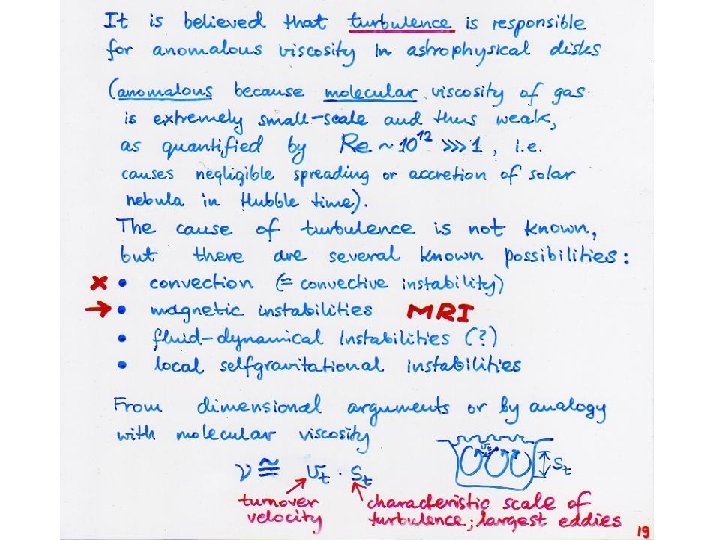 It is believed that turbulence is responsible
for anomalous viscosity in astrophysical disks
(anomalous because molecular viscosity of gas
is extremely small-scale and thus weak,
as quantified by Re ~ 10¹² ⋙ 1, i.e.
causes negligible spreading or accretion of solar
nebula in Hubble time).
The cause of turbulence is not known,
but there are several known possibilities:
× • convection (= convective instability)
→ • magnetic instabilities MRI
• fluid-dynamical instabilities (?)
• local selfgravitational instabilities
From dimensional arguments or by analogy
with molecular viscosity
ν ≅ v_t · s_t
v_t
s_t
turnover
velocity
characteristic scale of
turbulence; largest eddies
19